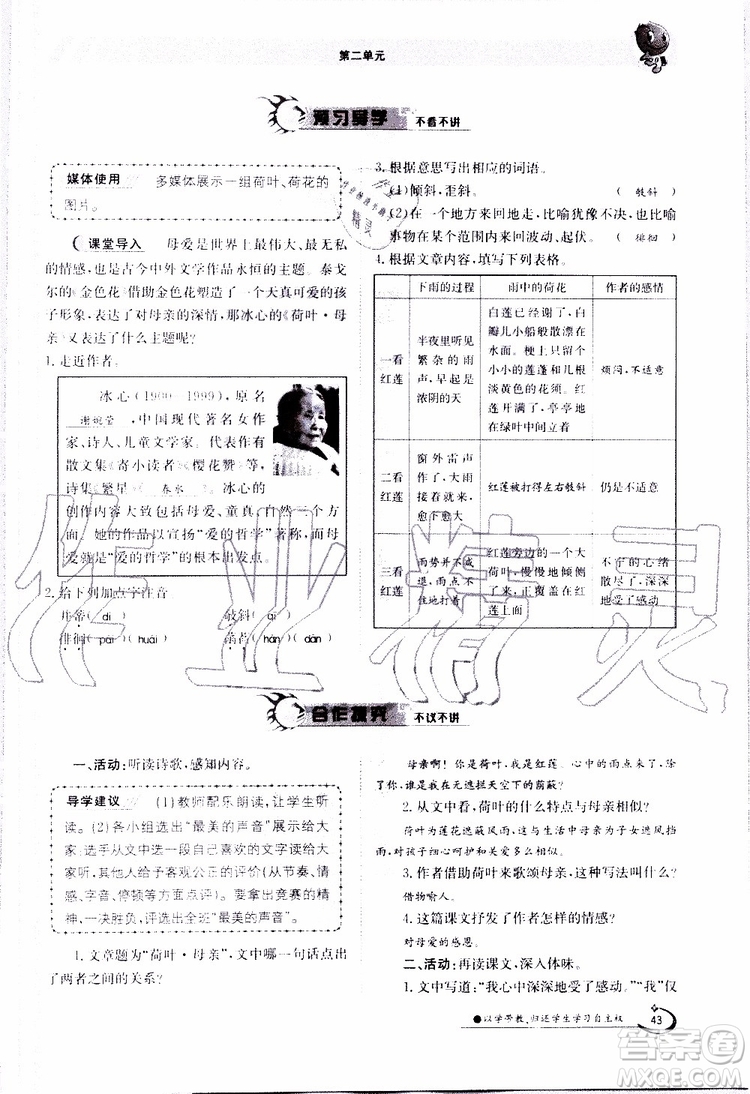 第二单元
预习导学 不看不讲
媒体使用 多媒体展示一组荷叶、荷花的
图片。
课堂导入 母爱是世界上最伟大、最无私
的情感,也是古今中外文学作品永恒的主题。泰戈
尔的《金色花》借助金色花塑造了一个天真可爱的孩
子形象,表达了对母亲的深情,那冰心的《荷叶·母
亲》又表达了什么主题呢?
1.走近作者。
冰心(1900—1999),原名
谢婉莹,中国现代著名女作
家、诗人、儿童文学家。代表作有
散文集《寄小读者》《樱花赞》等,
诗集《繁星》《春水》。冰心的
创作内容大致包括母爱、童真、自然三个方
面。她的作品以宣扬“爱的哲学”著称,而母
爱就是“爱的哲学”的根本出发点。
2.给下列加点字注音。
并蒂(dì) 攲斜(qī)
徘徊(pái)(huái) 菡萏(hàn)(dàn)
3.根据意思写出相应的词语。
(1)倾斜,歪斜。 (攲斜)
(2)在一个地方来回地走,比喻犹像不决,也比喻
事物在某个范围内来回浮动、起伏。 (徘徊)
4.根据文章内容,填写下列表格。
下雨的过程 雨中的荷花 作者的感情
一看
红莲
半夜里听见
繁杂的雨
声,早起是
浓阴的天
白莲已经谢了,白
瓣儿小船般散漂在
水面。梗上只留个
小小的莲蓬和几根
淡黄色的花须。红
莲开满了,亭亭地
在绿叶中间立着
烦闷,不适意
二看
红莲
窗外雷声
作了,大雨
接着就来,
愈下愈大
红莲被打得左右攲斜
仍是不适意
三看
红莲
雨势并不减
退,雨点不
住地打着
红莲旁边的一个大
荷叶,慢慢地倾侧
了来,正覆盖在红
莲上面
不宁的心绪
散尽了,深深
地受了感动
合作探究 不议不讲
一、活动:听读诗歌,感知内容。
导学建议 (1)教师配乐朗读,让学生听
读。(2)各小组选出“最美的声音”展示给大
家,选手从文中选一段自己喜欢的文字读给大
家听,其他人给予客观公正的评价(从节奏、情
感、字音、停顿等方面)。要拿出竞赛的精
神,一决胜负,评选出全班“最美的声音”。
1.文章题为“荷叶·母亲”,文中哪一句话点出
了两者之间的关系?
母亲啊!你是荷叶,我是红莲。心中的雨点来了,除
了你,谁是我在无遮拦天空下的荫蔽?
2.从文中看,荷叶的什么特点与母亲相似?
荷叶为莲花遮蔽风雨,这与生活中母亲为子女遮风挡
雨,对孩子细心呵护和关爱多么相似。
3.作者借助荷叶来歌颂母亲,这种写法叫什么?
借物喻人。
4.这篇课文抒发了作者怎样的情感?
对母爱的感恩。
二、活动:再读课文,深入体味。
1.文中写道:“我心中深深地受了感动。”“我”仅
●以学带教,归还学生学习自主权
43
作业精灵
答案圈
MXQE.COM